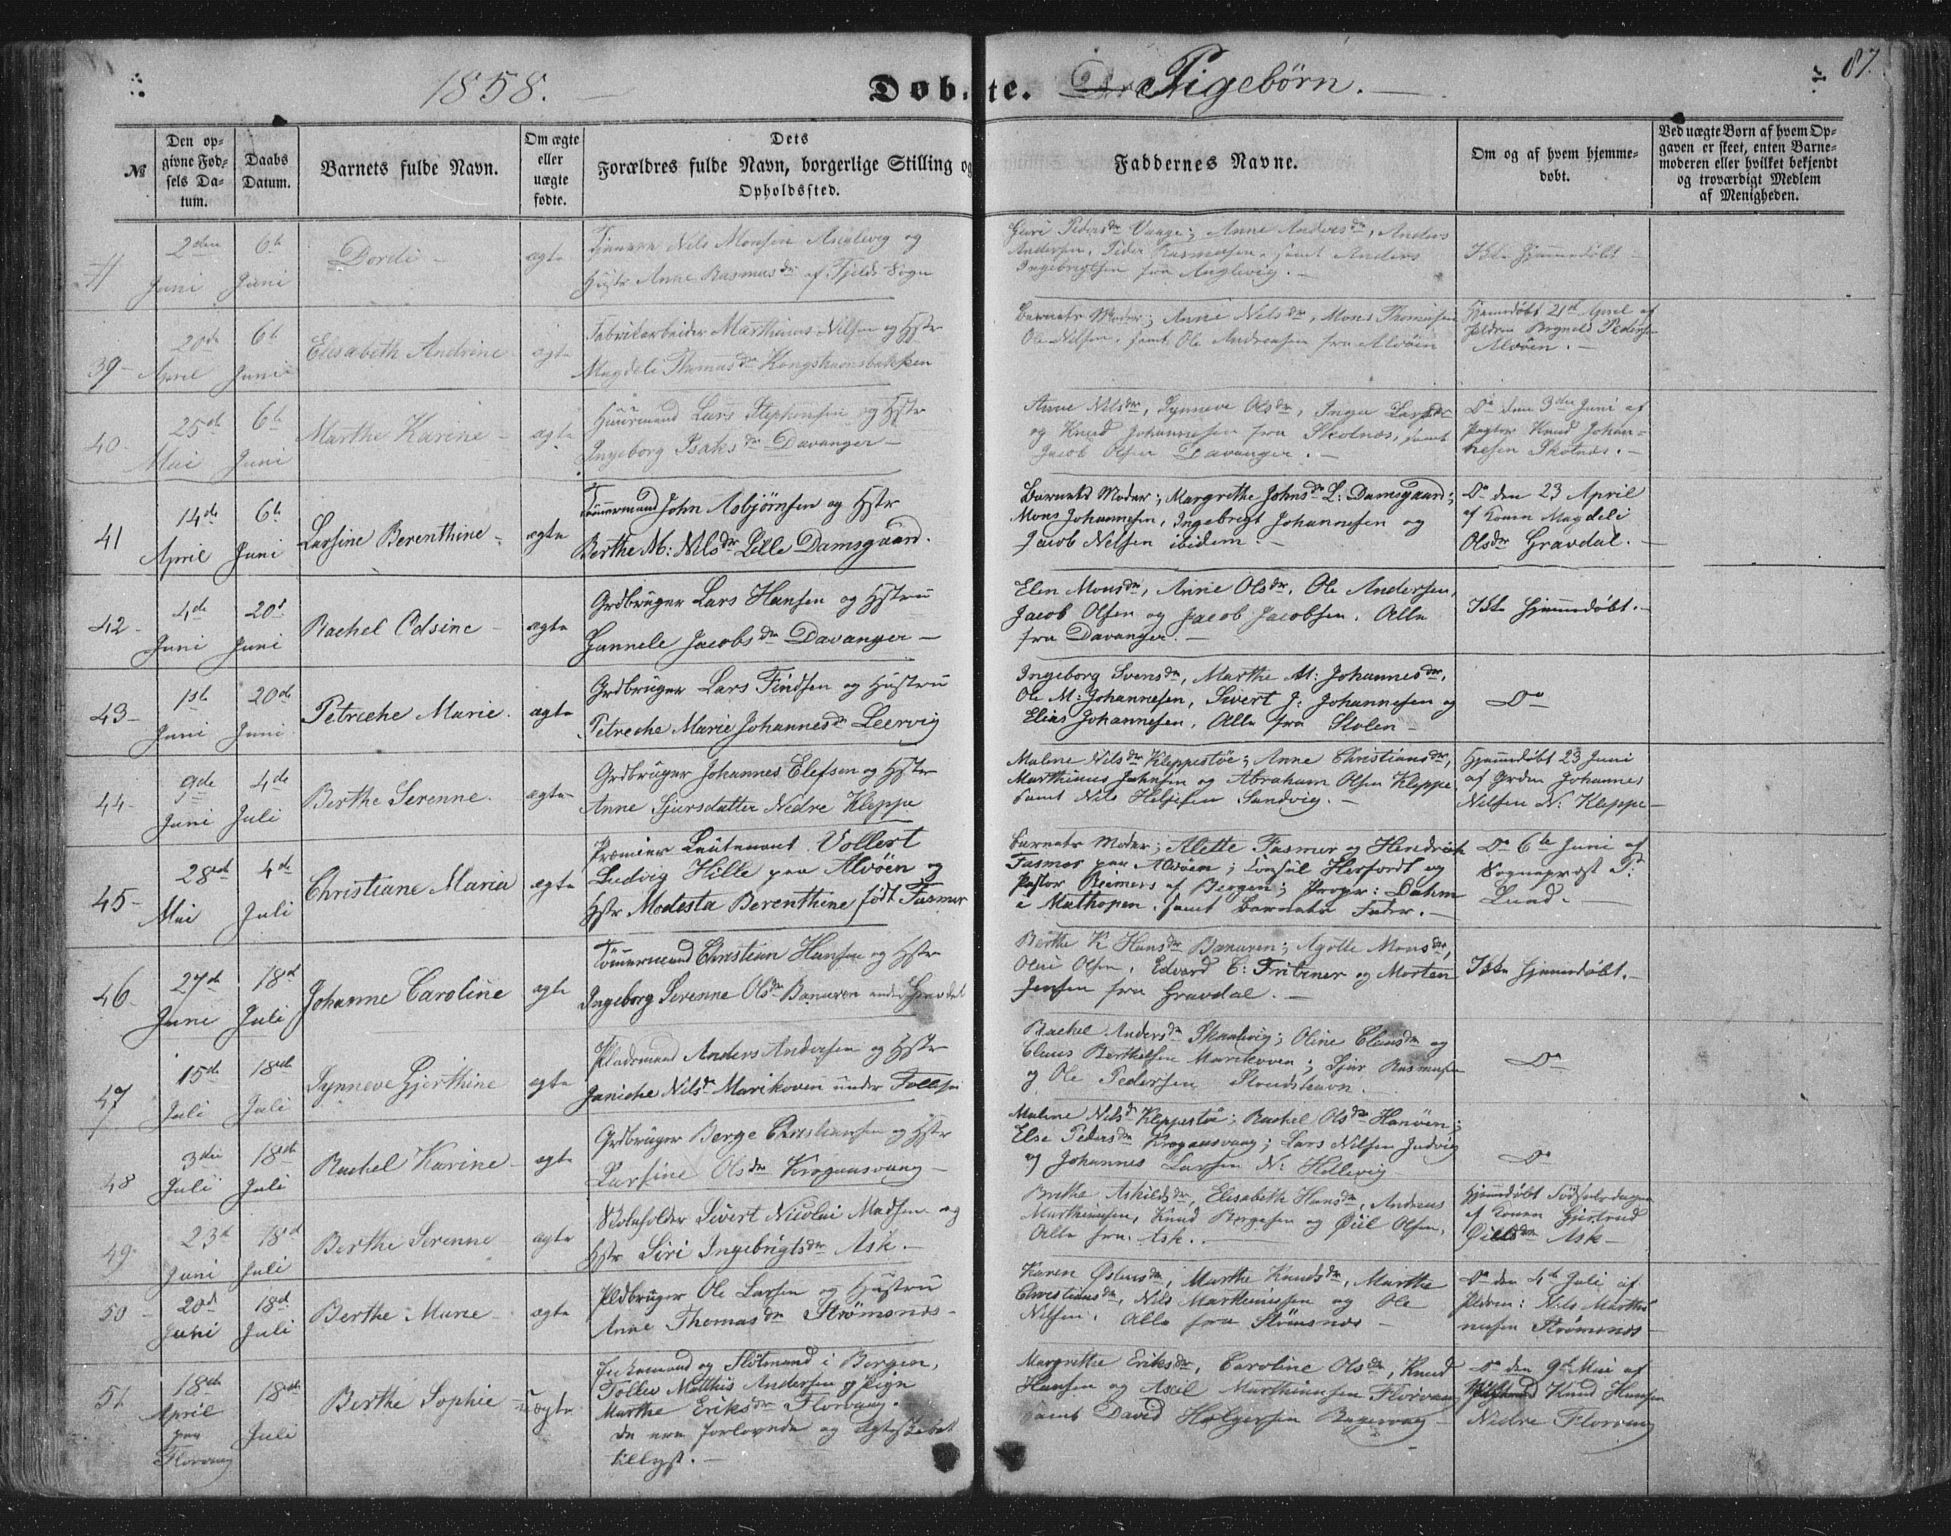 1858. Døbte. Pigebørn. 87.
№
Den opgivne Fødsels Datum.
Daabs Datum.
Barnets fulde Navn.
Om ægte eller uægte fødte.
Dets Forældres fulde Navn, borgerlige Stilling og Opholdssted.
Faddernes Navne.
Om og af hvem hjemmedøbt.
Ved uægte Børn af hvem Opgaven er skeet, enten Barnemoderen eller hvilket bekjendt og troværdigt Medlem af Menigheden.
2den Juni
6te Juni
Dordi
ægte
Nils Monsen og
Hustr Anne Rasmusdr af Fjelds Sogn
Guri Pedersdr Vaage; Anne Andersdr, Anders
Andersen, Peder Rasmussen, samt Anders
Ingebrigtsen fra
Ikke hjemmedøbt
39
April
6te Juni
Elisabeth Andrine
ægte
Fabrikarbeider Marthinus Nilsen og Hstr
Magdeli Thomasdr
Barnets Moder; Anne Nilsdr, Mons Thomassen
Ole Nilsen, samt Ole Andreasen fra Alvøen
Hjemmedøbt 21de April af
Pedersen
Alvøen.
40
25de Mai
6te Juni
Marthe Karine
ægte
Huusmand Lars Stephensen og Hstr
Ingeborg Isaksdr Davanger
Anne Nilsdr, Synneve Olsdr, Inger Larsdr
og Knud Johannesen fra Skolnæs, samt
Jacob Olsen Davanger.
Do den 3die Juni af
Knud Johannesen Skolnæs.
41
14de April
6te Juni
Larsine Berenthine
ægte
Tømmermand John Asbjørnsen og Hstr
Berthe M: Nilsdr Lille Damsgaard.
Barnets Moder; Margrethe Johnsdr L: Damsgaard;
Mons Johannesen, Ingebrigt Johannesen og
Jacob Nilsen ibidem.
Do den 23 April
af Konen Magdeli
Olsdr Gravdal.
42
4de Juni
20de Juni
Rachel Olsine
ægte
Grdbruger Lars Hansen og Hstru
Gunnele Jacobsdr Davanger
Elen Monsdr, Anne Olsdr, Ole Andersen,
Jacob Olsen og Jacob Jacobsen. Alle
fra Davanger.
Ikke hjemmedøbt.
43
1ste Juni
20de Juni
Petreche Marie.
ægte
Grdbruger Lars Findsen og Hustru
Petreche Marie Johannesdr Leervig
Ingeborg Svensdr, Marthe M: Johannesdr,
Ole M: Johannesen, Sivert J: Johannesen og
Elias Johannesen, Alle fra Stolen
Do
44
9de Juni
4de Juli
Berthe Serenne.
ægte
Grdbruger Johannes Elefsen og Hstr
Anne Sjursdatter Nedre Kleppe
Maline Nilsdr Kleppestøe; Anne Christiansdr,
Marthinus Johnsen og Abraham Olsen Kleppe,
samt Nils Sandvig.
Hjemmedøbt 23 Juni
af Grdm Johannes
Nilsen N: Kleppe
45
28de Mai
4de Juli
Christiane Maria
ægte
Premier Lieutenant Vollert
Ludvig Hille paa Alvøen og
Hstr Modesta Berenthine født Fasmer
Barnets Moder; Alette Fasmer og Hendrich
Fasmer paa Alvøen; Consul Herfordt og
Pastor Reimers af Bergen; Dahm
i Mathopen, samt Barnets Fader.
Do 6te Juni af
Sognepræst
Lund.
46
27de Juni
18de Juli
Johanne Caroline
ægte
Tømmermand Christian Hansen og Hstr
Ingeborg Serenne Olsdr Banuren under Gravdal
Berthe K Hansdr Banuren; Agøtte Monsdr,
Olai Olsen, Edvard C: Fritzner og Morten
Jensen fra Gravdal.
Ikke hjemmedøbt.
47
15de Juli
18de Juli
Synneve Gjerthine
ægte
Pladsmand Anders Andersen og Hstr
Janiche Nilsdr Marikoven under
Rachel Andersdr Skaalevig; Oline Clausdr og
Claus Berthelsen Marikoven; Sjur Rasmussen
og Ole Pedersen
Do
48
3die Juli
18de Juli
Rachel Karine
ægte
Grdbruger Berge Christiansen og Hstr
Larsine Olsdr Krogaasvaag
Maline Nilsdr Kleppestøe; Rachel Olsdr Hanøen;
Else Pedersdr Krogaasvaag; Lars Nilsen Judvig
og Johannes Larsen N: Hellevig
Do
49
23de Juni
18de Juli
Berthe Serenne
ægte
Skoleholder Sivert Nicolai Madsen og
Hstr Siri Ingebrigtsdr Ask.
Brithe Askildsdr, Elisabeth Hansdr, Andreas
Marthinusen, Knud Børgesen og Øiel Olsen,
Alle fra Ask.
Hjemmedøbt Fødselsdagen
af Konen Gjertrud
Ask
50
20de Juni
18de Juli
Berthe Marie
ægte
Pldbruger Ole Larsen og Hustru
Anne Thomasdr Strømsnæs
Karen Marthe Knudsdr, Marthe
Christiansdr, Nils Marthinussen og Ole
Nilsen. Alle fra Strømsnæs
Do den 4de Juli af
Nils Marthinusen Strømsnæs
51
18de April paa Florvaag
18de Juli
Berthe Sophie
uægte
og i Bergen,
Tollev Matthis Andersen og Pige
Marthe Eriksdr Florvaag.
De ere forlovede og Ægteskabet
tillyst.
Margrethe Eriksdr, Caroline Olsdr, Knud
Hansen og Axel Marthinusen Florvaag
samt David Holgersen
Do den 9de Mai af
Knud Hansen
Nedre Florvaag